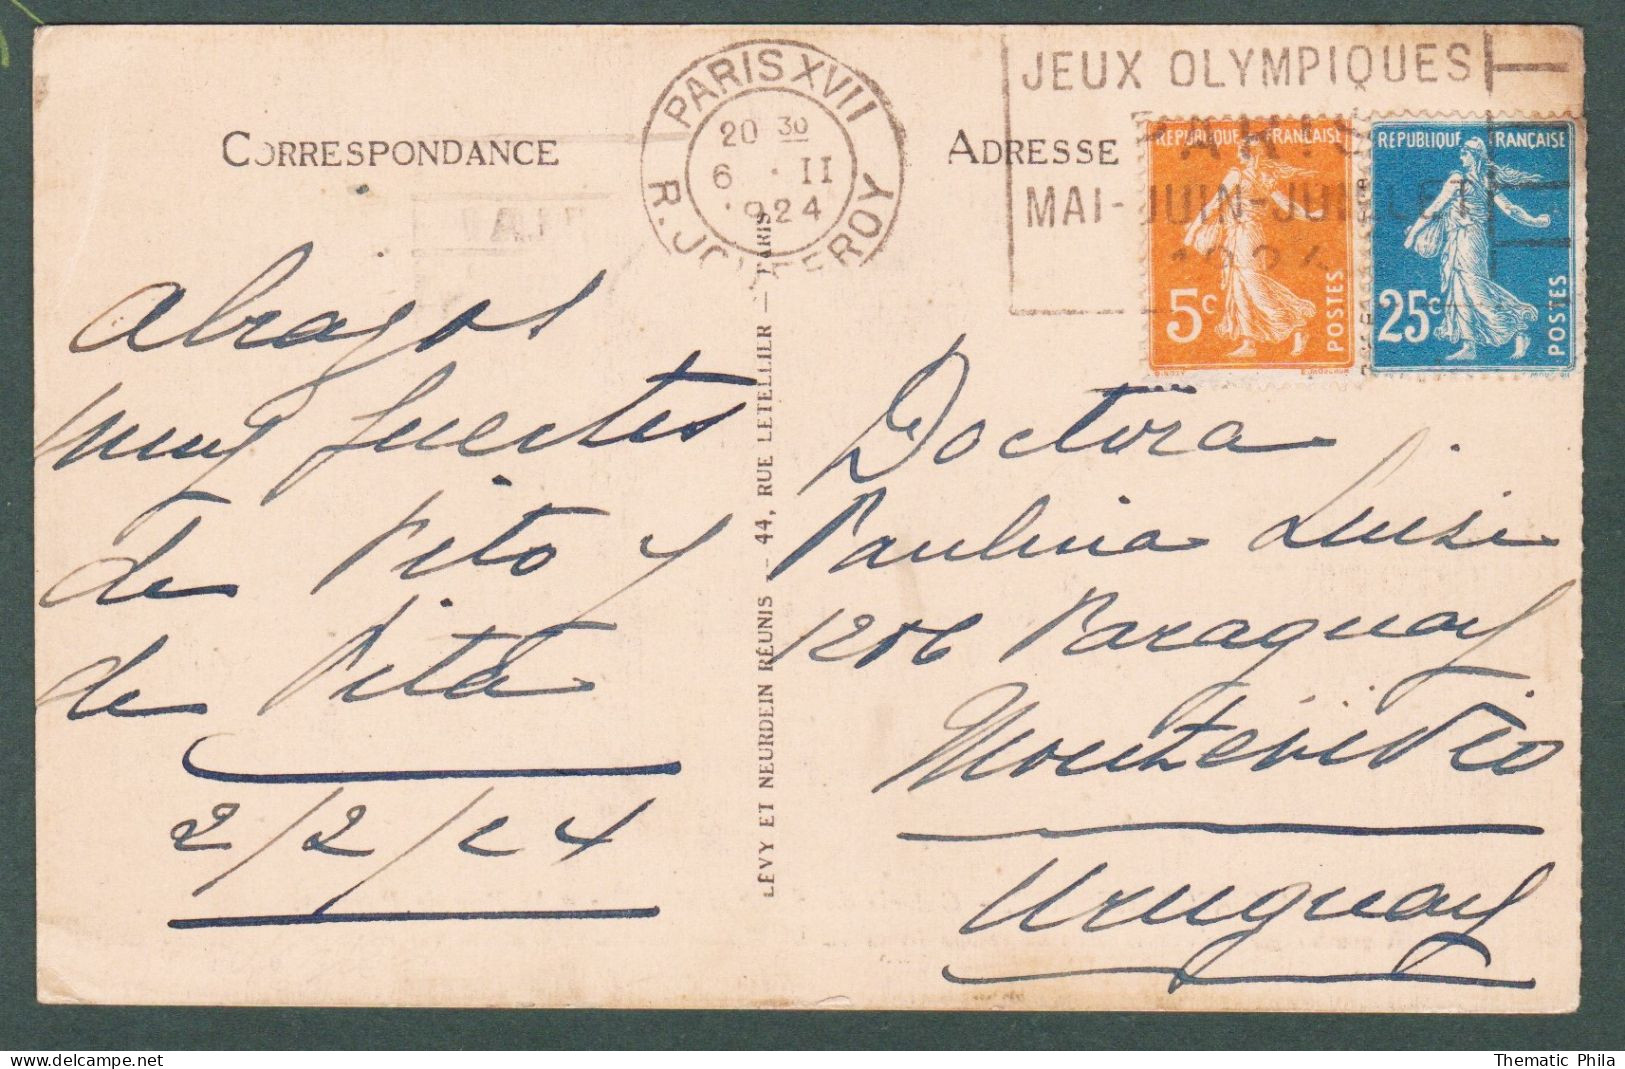 JEUX OLYMPIQUES
PARIS
MAI-JUIN-JUILLET
1924
PARIS XVII
20 30
6 · II
·924
R. JOUFFROY
CORRESPONDANCE
ADRESSE
REPUBLIQUE FRANÇAISE
5c
POSTES
REPUBLIQUE FRANÇAISE
25c
POSTES
Abrazos
muy fuertes
de Pito y
de Pita
2/2/24
LÉVY ET NEURDEIN RÉUNIS — 44, RUE LETELLIER — PARIS
Doctora
Paulina Luisi
1206 Paraguay
Montevideo
Uruguay
Thematic Phila